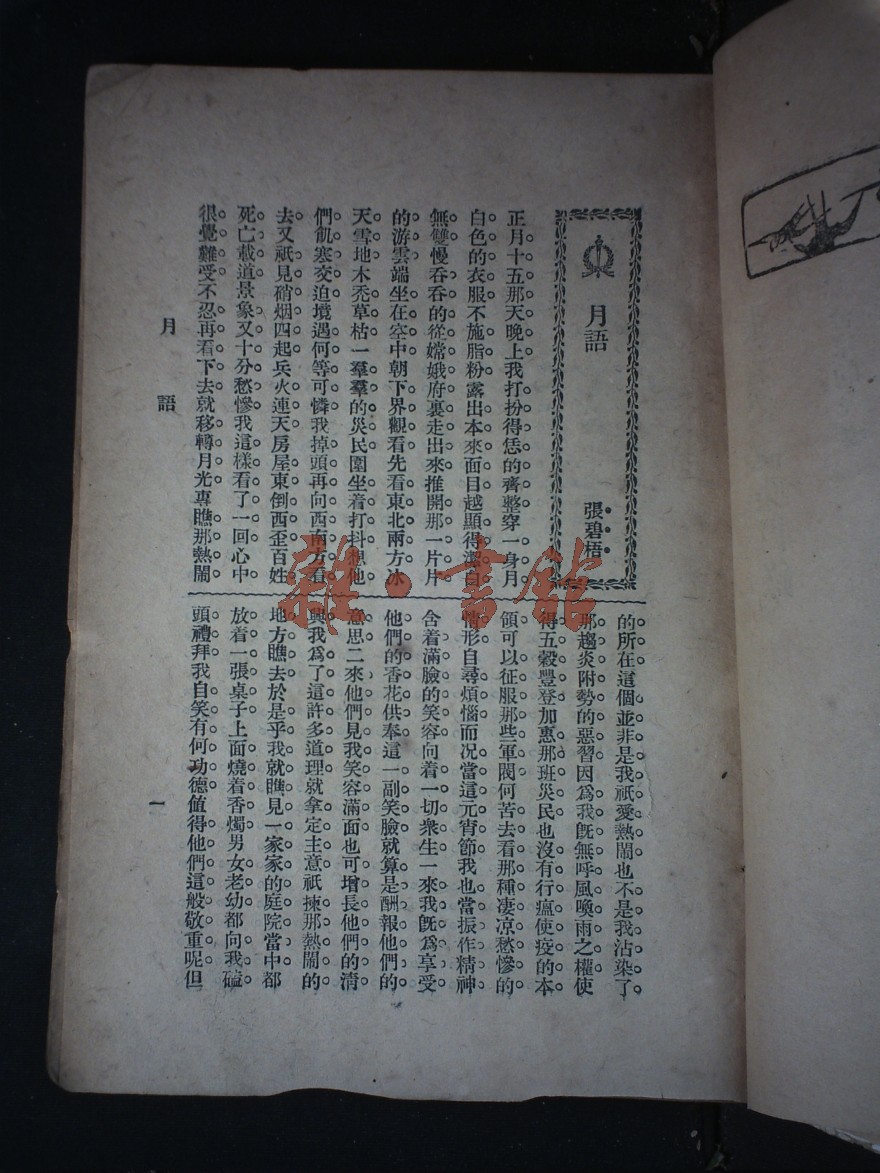 月語
張碧梧
正月十五那天晚上我打扮得恁的齊整穿一身月
白色的衣服不施脂粉露出本來面目越顯得潔白
無雙慢吞吞的從嫦娥府裏走出來推開那一片片
的游雲端坐在空中朝下界觀看先看東北兩方冰
天雪地木禿草枯一羣羣的災民圍坐着打抖想他
們飢寒交迫境遇何等可憐我掉頭再向西南方看
去又祇見硝烟四起兵火連天房屋東倒西歪百姓
死亡載道景象又十分愁慘我這樣看了一回心中
很覺難受不忍再看下去就移轉月光專瞧那熱鬧
的所在這個並非是我祇愛熱鬧也不是我沾染了
那趨炎附勢的惡習因爲我旣無呼風喚雨之權使
得五穀豐登加惠那班災民也沒有行瘟使疫的本
領可以征服那些軍閥何苦去看那種凄凉愁慘的
情形自尋煩惱而况當這元宵節我也當振作精神
含着滿臉的笑容向着一切衆生一來我旣爲享受
他們的香花供奉這一副笑臉就算是酬報他們的
意思二來他們見我笑容滿面也可增長他們的淸
興我爲了這許多道理就拿定主意祇揀那熱鬧的
地方瞧去於是乎我就瞧見一家家的庭院當中都
放着一張桌子上面燒着香燭男女老幼都向我磕
頭禮拜我自笑有何功德値得他們這般敬重呢但
月語
一
雜·書館